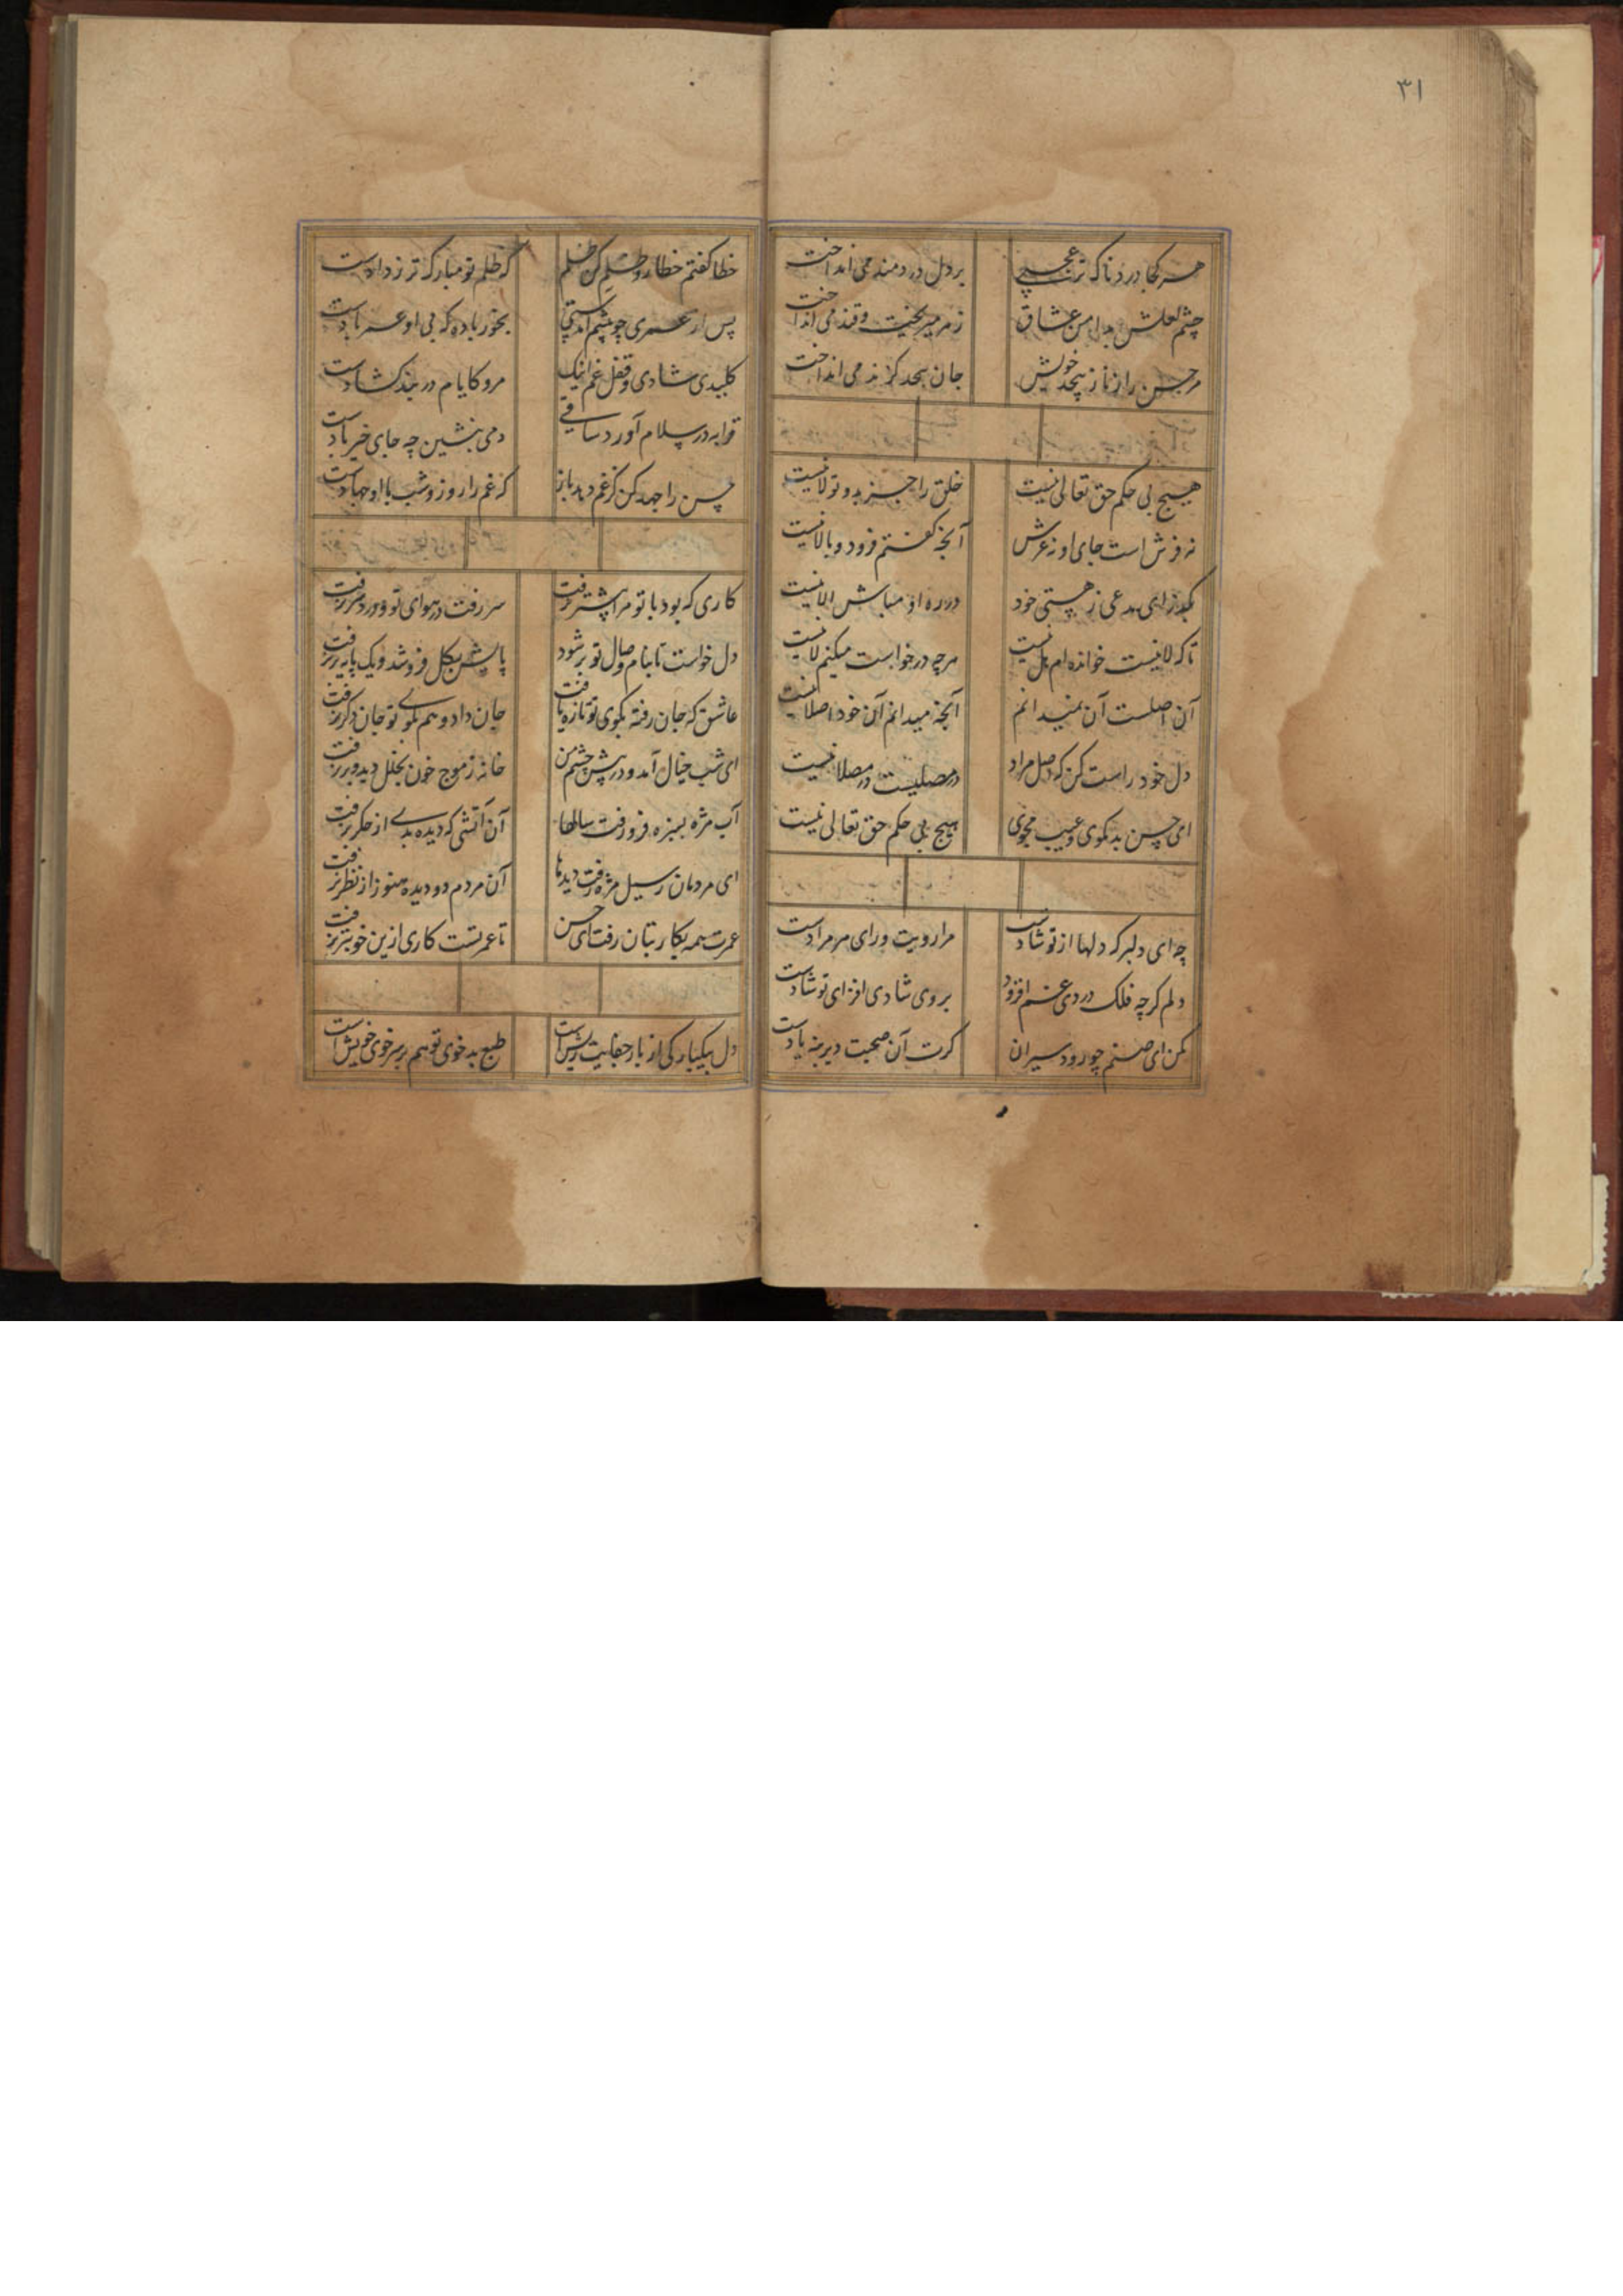 ۳۱
هر کجا دردناک تر عجبی بر دل دردمند می انداخت
چشم لعلش بدامن عشاق زهر میریخت و قند می انداخت
مر حسن را ز ناز بیحد خویش جان بیحد گزند می انداخت
هیچ بی حکم حق تعالی نیست خلق را جز بدو تولا نیست
نه فرش است جای او نه عرش آنچه گفتم فرود و بالا نیست
بگذر ای مدعی ز هستی خود در ره او مباش الا نیست
تا که لا نیست خوانده ام نیست هرچه درخواست میکنم لا نیست
آن اصلست آن نمیدانم آنچه میدانم آن خود اصلا نیست
دل خود راست کن که اصل مراد در مصلیست در مصلا نیست
ای حسن بد مگوی و عیب مجوی هیچ بی حکم حق تعالی نیست
چه ای دلبر که دلها از تو شادست مرا رویت ورای هر مرادست
دلم گرچه فلک دردی غم افزود بروی شادی افزای تو شادست
مکن ای صنم چو رود سیران گرت آن صحبت دیرینه یادست
خطا گفتم خطا رو ظلم کن ظلم که ظلم تو مبارک تر ز دادست
پس از عمری چو پیشم آمدستی بخور باده که بی او عمر بادست
کلیدی شادی و قفل غم اینک مرو کایام در بند گشادست
قرابه در سلام آورد ساقی دمی بنشین چه جای خیر بادست
حسن را جهد کن کز غم دهد باز که غم را روز و شب با او جهادست
کاری که بود با تو مرا پیشتر برفت سر رفت در هوای تو و درد سر برفت
دل خواست تا بنام وصال تو بر شود پایش بگل فرو شد و یک پایه بر نرفت
عاشق که جان رفته بکوی تو تازه یافت جان داد و هم بکوی تو جان دگر برفت
ای شب خیال آمد و در پیش چشم من خانه ز موج خون بخلل دید و برفت
آب مژه بسبزه فرو رفت سالها آن آتشی که دیده بدی از جگر نرفت
ای مردمان ز سیل مژه رفت دیدها آن مردم دو دیده هنوز از نظر نرفت
عمرت همه بکار بتان رفت ای حسن تا عمر تست کاری ازین خوبتر نرفت
دل بیکبارگی از بار جفایت ریش است طبع بدخوی تو هم بر سر خوی خویش است